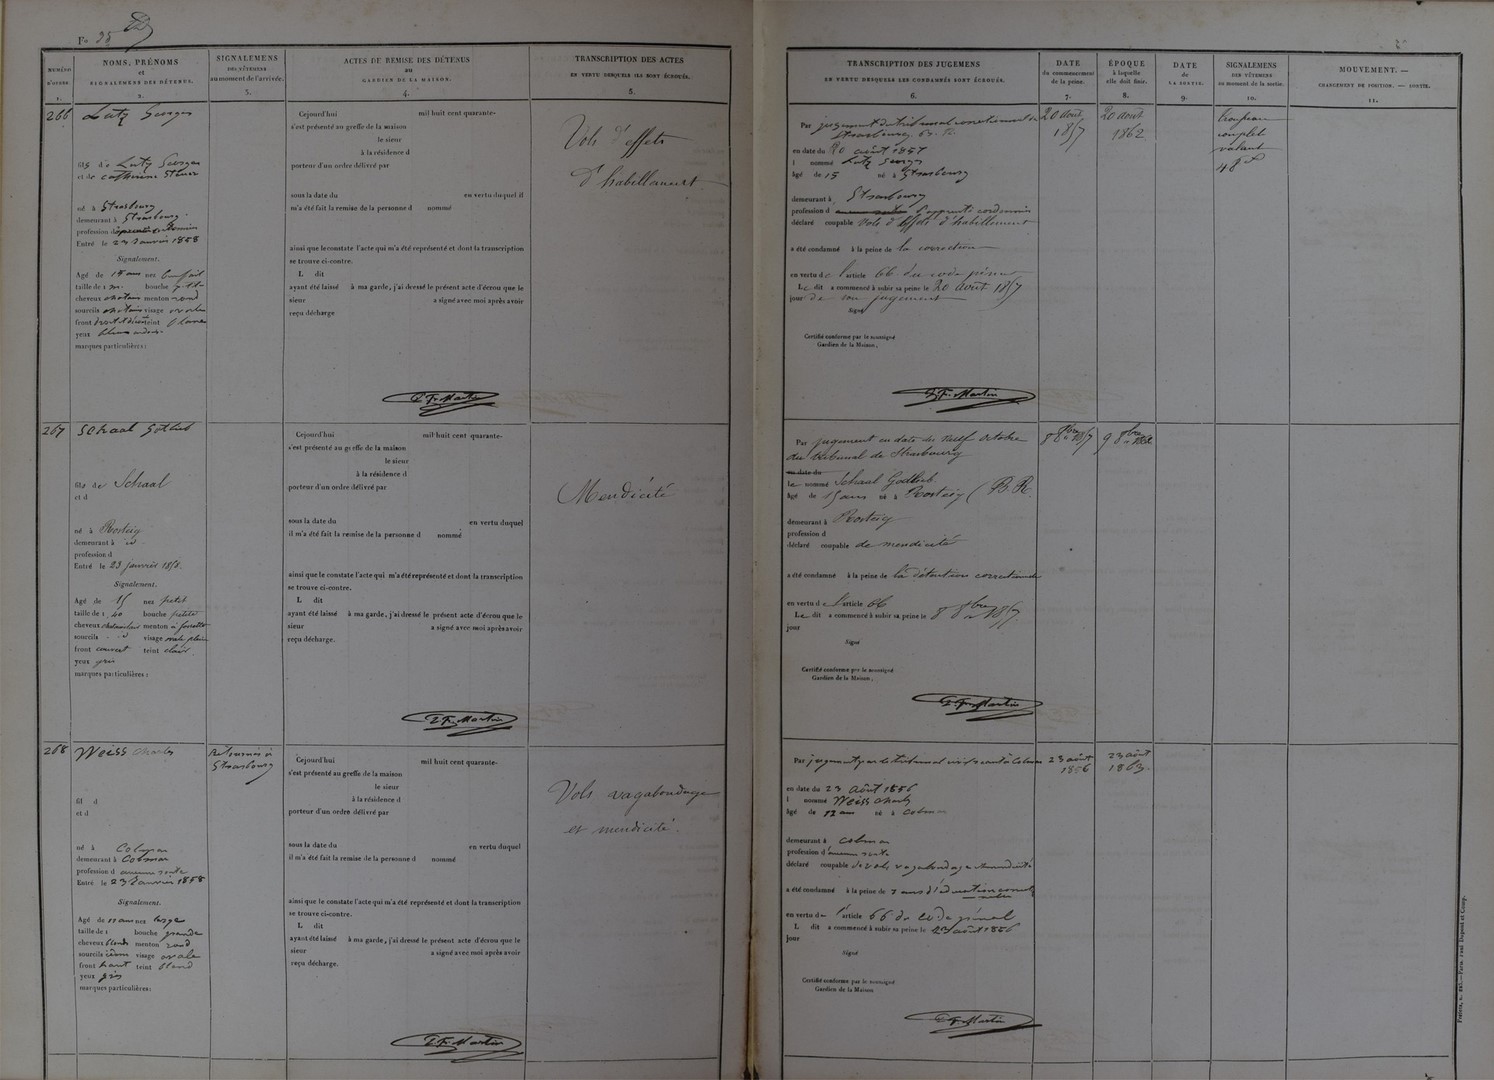 Fo 95
NUMÉRO
D'ORDRE
1.
NOMS, PRÉNOMS
et
SIGNALEMENS DES DÉTENUS.
2.
SIGNALEMENS
DES VÊTEMENS
au moment de l'arrivée.
3.
ACTES DE REMISE DES DÉTENUS
au
GARDIEN DE LA MAISON.
4.
TRANSCRIPTION DES ACTES
EN VERTU DESQUELS ILS SONT ÉCROUÉS.
5.
TRANSCRIPTION DES JUGEMENS
EN VERTU DESQUELS LES CONDAMNÉS SONT ÉCROUÉS.
6.
DATE
du commencement
de la peine.
7.
ÉPOQUE
à laquelle
elle doit finir.
8.
DATE
de
LA SORTIE.
9.
SIGNALEMENS
DES VÊTEMENS
au moment de la sortie.
10.
MOUVEMENT. —
CHANGEMENT DE POSITION. — SORTIE.
11.
266
Lutz Georges
fils de Lutz Georges
et de Catherine
né à Strasbourg
demeurant à Strasbourg
profession d
Entré le 23 Janvier 1858
Signalement.
Agé de 15 ans nez
taille de 1 m. bouche
cheveux chatains menton rond
sourcils chatains visage ovale
front teint
yeux
marques particulières :
Cejourd'hui mil huit cent quarante-
s'est présenté au greffe de la maison
le sieur
à la résidence d
porteur d'un ordre délivré par
sous la date du en vertu duquel il
m'a été fait la remise de la personne d nommé
ainsi que le constate l'acte qui m'a été représenté et dont la transcription
se trouve ci-contre.
L dit
ayant été laissé à ma garde, j'ai dressé le présent acte d'écrou que le
sieur a signé avec moi après avoir
reçu décharge
Martin
Vols d'effets
d'habillement
Par jugement du tribunal correctionnel de
Strasbourg
en date du 20 août 1857
l nommé Lutz Georg
âgé de 15 né à Strasbourg
demeurant à Strasbourg
profession d apprenti cordonnier
déclaré coupable Vols d'effets d'habillement
a été condamné à la peine de la correction
en vertu de l'article 66 du code pénal
Le dit a commencé à subir sa peine le 20 août 1857
jour de son jugement
Signé
Certifié conforme par le soussigné
Gardien de la Maison.
Martin
20 août
1857
20 août
1862
complet
valant
48
267
Schaal Gotlieb
fils de Schaal
et d
né à Rosteig
demeurant à id
profession d
Entré le 23 Janvier 1858.
Signalement.
Agé de 15 nez petit
taille de 1, 40 bouche petite
cheveux menton à fossette
sourcils id visage ovale plein
front couvert teint clair
yeux gris
marques particulières :
Cejourd'hui mil huit cent quarante-
s'est présenté au greffe de la maison
le sieur
à la résidence d
porteur d'un ordre délivré par
sous la date du en vertu duquel
il m'a été fait la remise de la personne d nommé
ainsi que le constate l'acte qui m'a été représenté et dont la transcription
se trouve ci-contre.
L dit
ayant été laissé à ma garde, j'ai dressé le présent acte d'écrou que le
sieur a signé avec moi après avoir
reçu décharge.
Martin
Mendicité
Par jugement en date du neuf octobre
du tribunal de Strasbourg
en date du
Le nommé Schaal Godlieb
âgé de 15 ans né à Rosteig (B. R.
demeurant à Rosteig
profession d
déclaré coupable de mendicité
a été condamné à la peine de la détention correctionnelle
en vertu de l'article 66
Le dit a commencé à subir sa peine le 8 8bre 1857
jour
Signé
Certifié conforme par le soussigné
Gardien de la Maison.
Martin
8 8bre 1857
9 8bre 1862
268
Weiss Charles
Retourné à
Strasbourg
fil d
et d
né à Colmar
demeurant à Colmar
profession d aucune
Entré le 23 Janvier 1858
Signalement.
Agé de ans nez large
taille de 1 bouche grande
cheveux blonds menton rond
sourcils idem visage ovale
front haut teint blond
yeux gris
marques particulières :
Cejourd'hui mil huit cent quarante-
s'est présenté au greffe de la maison
le sieur
à la résidence d
porteur d'un ordre délivré par
sous la date du en vertu duquel
il m'a été fait la remise de la personne d nommé
ainsi que le constate l'acte qui m'a été représenté et dont la transcription
se trouve ci-contre.
L dit
ayant été laissé à ma garde, j'ai dressé le présent acte d'écrou que le
sieur a signé avec moi après avoir
reçu décharge.
Martin
Vols vagabondage
et mendicité.
Par jugement par le tribunal civil séant à Colmar
en date du 23 Août 1856
l nommé Weiss Charles
âgé de 12 ans né à Colmar
demeurant à Colmar
profession d'aucune
déclaré coupable de vols vagabondage et mendicité
a été condamné à la peine de 7 ans d'éducation
en vertu de l'article 66 du code pénal
L dit a commencé à subir sa peine le 23 août 1856
jour
Signé
Certifié conforme par le soussigné
Gardien de la Maison
Martin
23 août
1856
23 août
1863